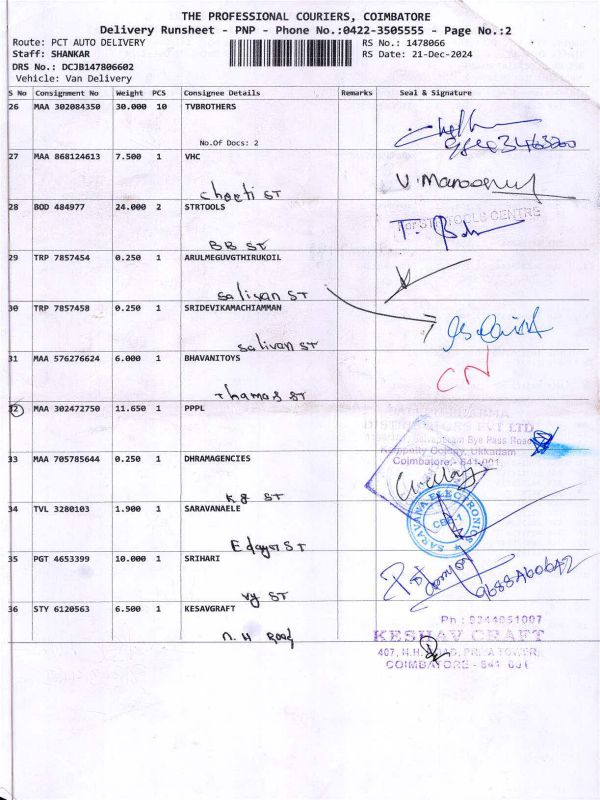 THE PROFESSIONAL COURIERS, COIMBATORE
Delivery Runsheet - PNP - Phone No.:0422-3505555 - Page No.:2
Route: PCT AUTO DELIVERY RS No.: 1478066
Staff: SHANKAR RS Date: 21-Dec-2024
DRS No.: DCJB147806602
Vehicle: Van Delivery
S No Consignment No Weight PCS Consignee Details Remarks Seal & Signature
26 MAA 302084350 30.000 10 TVBROTHERS
No.Of Docs: 2
27 MAA 868124613 7.500 1 VHC
V. Manoo
ST
28 BOD 484977 24.000 2 STRTOOLS
For STR TOOLS CENTRE
BB ST
29 TRP 7857454 0.250 1 ARULMEGUVGTHIRUKOIL
salivan ST
30 TRP 7857458 0.250 1 SRIDEVIKAMACHIAMMAN
salivan ST
31 MAA 576276624 6.000 1 BHAVANITOYS
CN
Thamas ST
32 MAA 302472750 11.650 1 PPPL
DISTRIBUTORS PVT LTD
Bye Pass Road
Colony, Ukkadam
Coimbatore - 641 001
33 MAA 705785644 0.250 1 DHRAMAGENCIES
KG ST
34 TVL 3280103 1.900 1 SARAVANAELE
SARAVANA ELECTRONICS
CBE-1
ST
35 PGT 4653399 10.000 1 SRIHARI
VY ST
36 STY 6120563 6.500 1 KESAVGRAFT
Ph : 9344051007
KESHAV CRAFT
N. H Road
407, N.H. ROAD, PRIYA TOWER,
COIMBATORE - 641 001